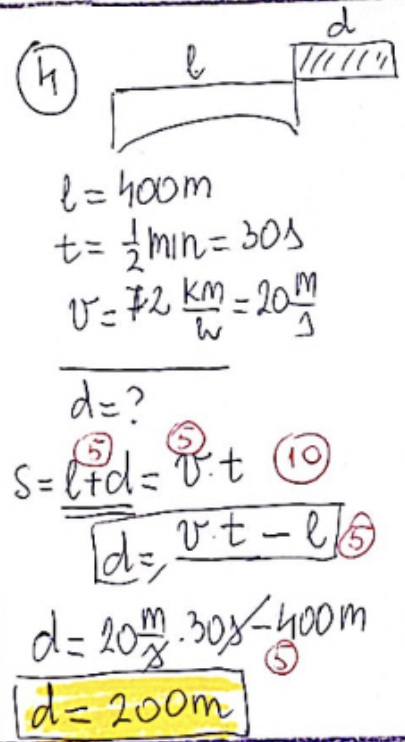 d
4
l
l = 400m
t = 1/2 min = 30s
v = 72 km/h = 20 m/s
d = ?
5 5
S = l+d = v·t 10
d = v·t - l 5
d = 20 m/s · 30s - 400m
5
d = 200m